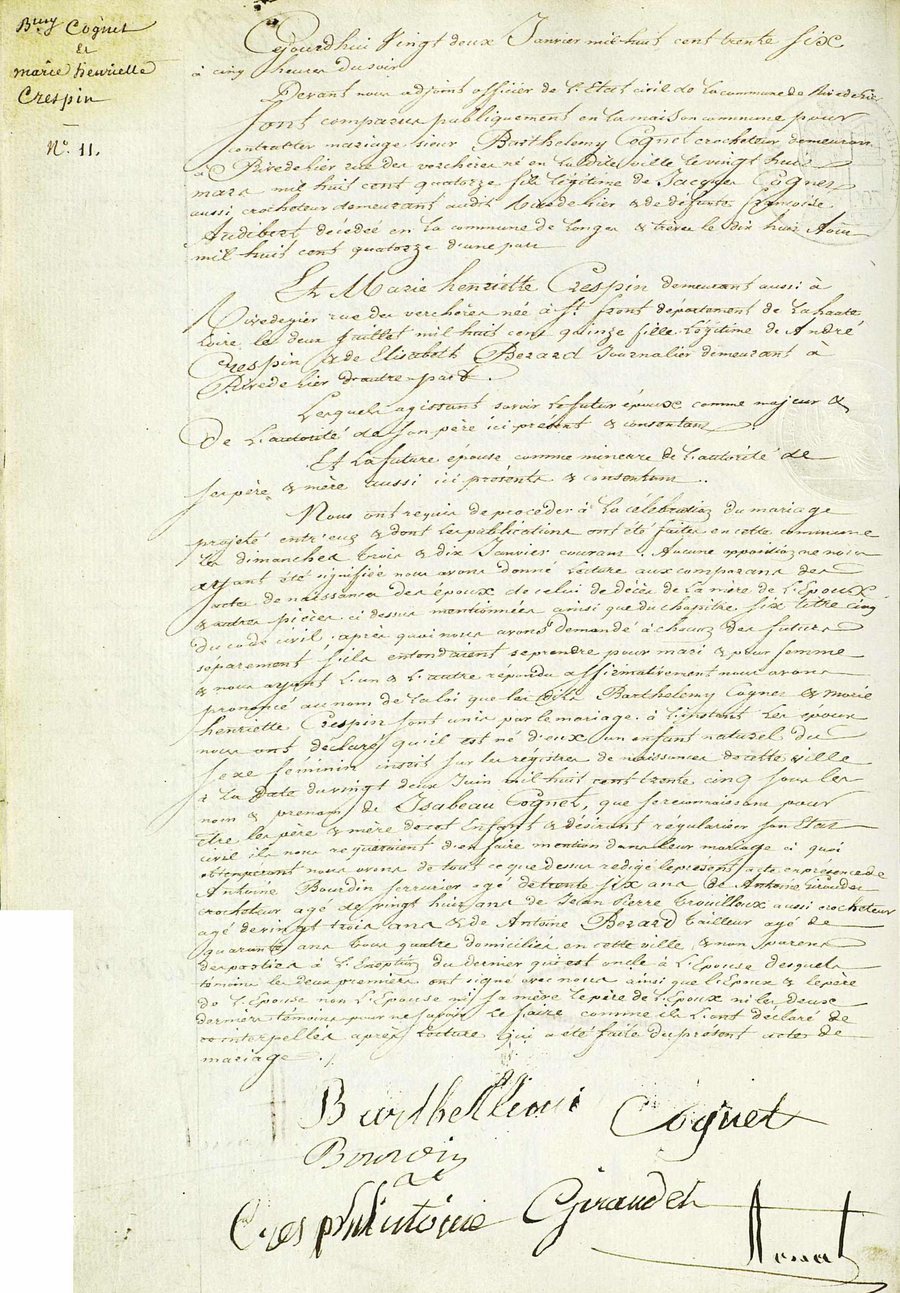 Bmy Cognet
Et
marie henriette
Crespin
N.º 11.
Cejourdhui Vingt deux Janvier mil huit cent trente Six
à cinq heures du soir
Devant nous adjoint officier de L'Etat civil de La commune de Rivedehier
sont comparus publiquement en la maison commune pour
contracter mariage sieur Barthelemy Cognet crocheteur demeurant
à Rivedehier rue des verchères né en La Dite ville le vingt huit
mars mil huit cent quatorze fils légitime de Jacques Cognet
aussi crocheteur demeurant audit Rivedehier & de défunte Françoise
Audibert décédée en La commune de Longes & trèves le dix huit Août
mil huit cent quatorze d'une part
Et Marie henriette Crespin demeurant aussi à
Rivedegier rue des verchères née à St front département de La haute
Loire le deux Juillet mil huit cent quinze fille Légitime de André
Crespin & de Elisabeth Berard Journalier demeurant à
Rivedehier d'autre part.
Lesquels agissant savoir Le futur époux comme majeur &
De L'autorité de son père ici présent & consentant
Et La future épouse comme mineure de L'autorité de
ses père & mère aussi ici présents & consentans.
Nous ont requis de procéder à La célébration du mariage
projeté entr'eux & dont Les publications ont été faites en cette commune
Les dimanches trois & dix Janvier courant. Aucune opposition ne nous
ayant été signifiée nous avons donné Lecture aux comparans des
actes de naissance des époux de celui de décès de La mère de L'Epoux
& autres pièces ci dessus mentionnées ainsi que du chapitre six titre cinq
du code civil. après quoi nous avons demandé à chacun des futurs
séparement s'ils entendaient se prendre pour mari & pour femme
& nous ayant L'un & L'autre répondu affirmativement nous avons
prononcé au nom de La Loi que Les dits Barthelemy Cognet & marie
henriette Crespin sont unis par le mariage. à L'instant Les époux
nous ont déclaré qu'il est né d'eux un enfant naturel du
sexe féminin inscrit sur les régistres de naissances de cette ville
à La Date du vingt deux Juin mil huit cent trente cinq sous les
nom & prenom de Isabeau Cognet, que se reconnaissant pour
être les père & mère de cet Enfant & désirant régulariser son Etat
civil ils nous requeraient d'en faire mention dans leur mariage à quoi
obtemperant nous avons de tout ce que dessus redigé le présent acte en présence de
Antoine Bourdin serrurier agé de trente six ans, de Antoine Giraudet
crocheteur agé de vingt huit ans de Jean Pierre Trouilloux aussi crocheteur
agé de vingt trois ans & de Antoine Berard tailleur agé de
quarante ans tous quatre domiciliés en cette ville, & non parens
des parties à L'Exception du dernier qui est oncle à L'Epouse desquels
témoins les deux premiers ont signé avec nous ainsi que L'Epoux & Le père
de L'Epouse non L'Epouse ni sa mère Le père de L'Epoux ni les deux
derniers témoins pour ne savoir Le faire comme ils L'ont déclaré de
ce interpellés après Lecture qui a été faite du présent acte de
mariage.
Barthellemi Cognet
Bourdin
Crespin Antoine Giraudet